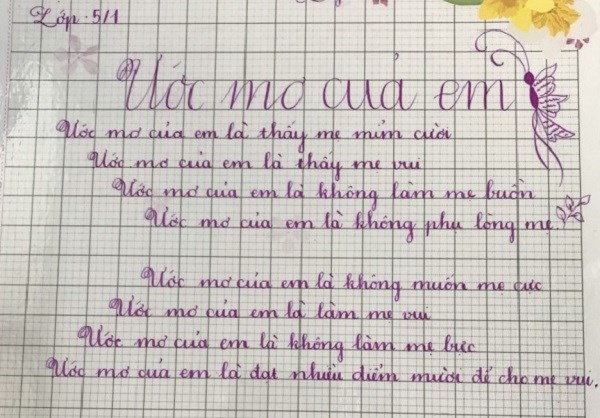 Lớp: 5/1
Ước mơ của em
Ước mơ của em là thấy mẹ mỉm cười
Ước mơ của em là thấy mẹ vui
Ước mơ của em là không làm mẹ buồn
Ước mơ của em là không phụ lòng mẹ.
Ước mơ của em là không muốn mẹ cực
Ước mơ của em là làm mẹ vui
Ước mơ của em là không làm mẹ bực
Ước mơ của em là đạt nhiều điểm mười để cho mẹ vui.